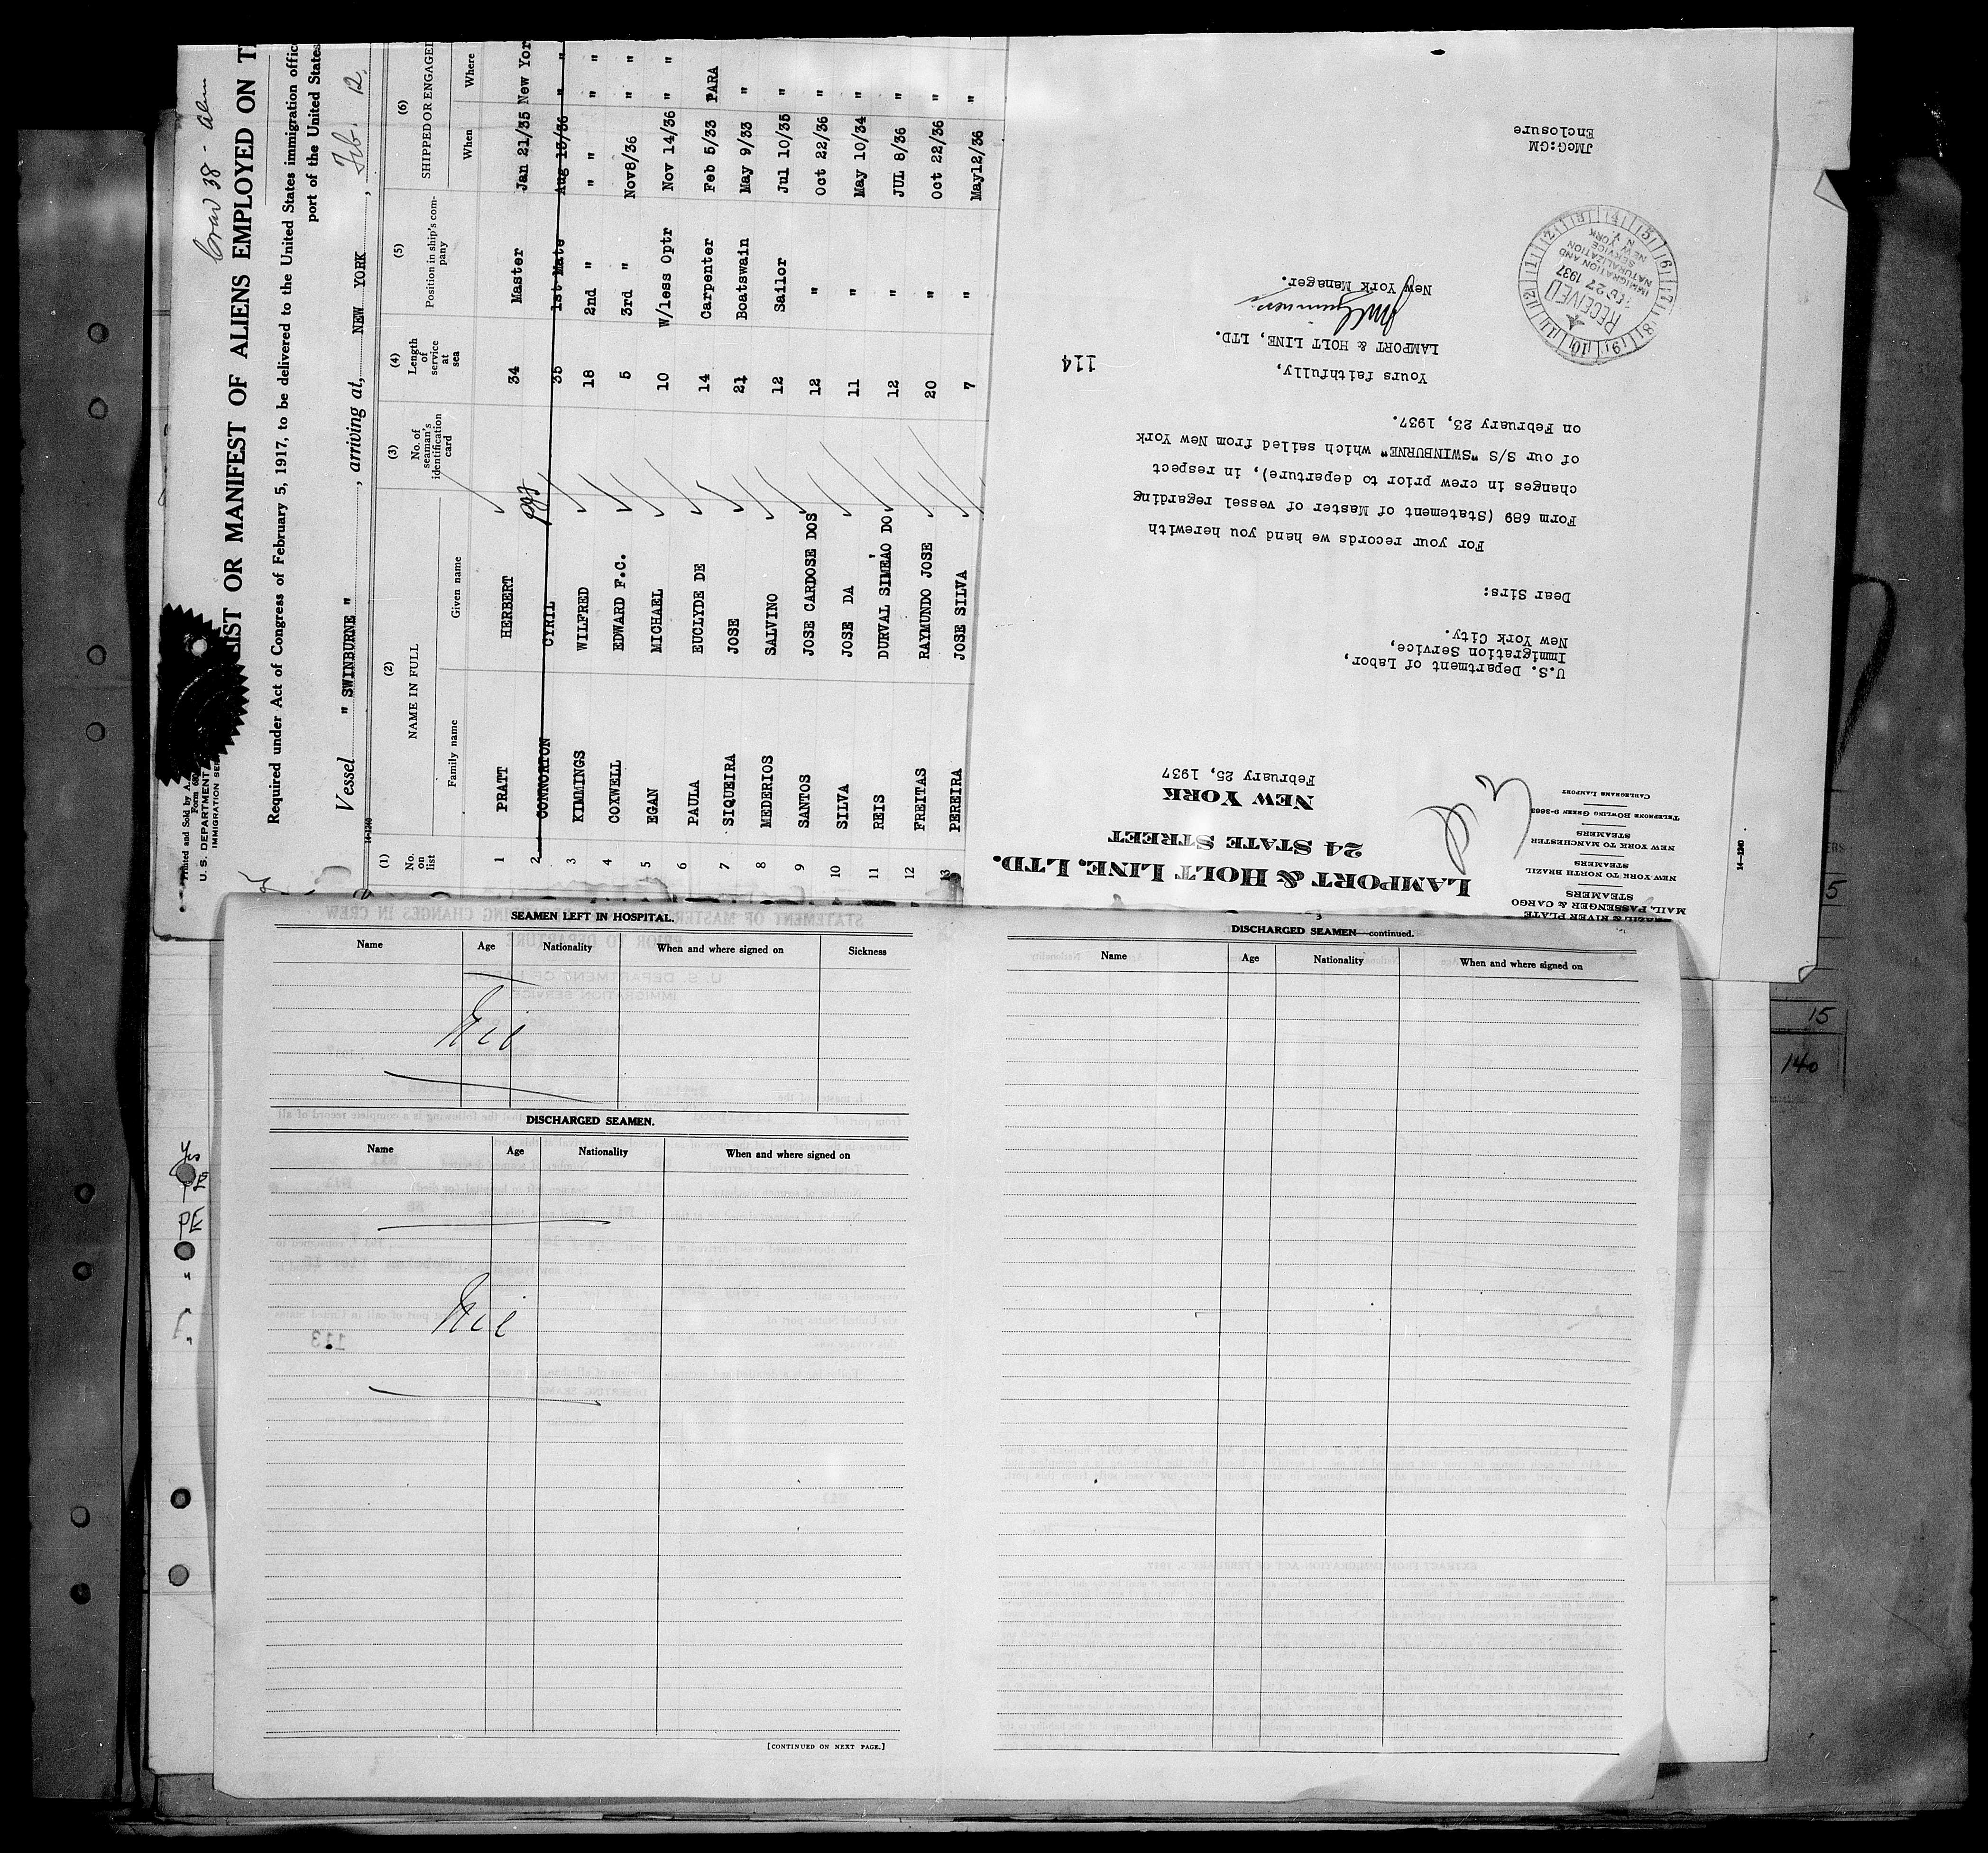 Crew 38 - Alm
LIST OR MANIFEST OF ALIENS EMPLOYED ON T
Required under Act of Congress of February 5, 1917, to be delivered to the United States immigration offic
port of the United States
Printed and Sold by A.
U. S. DEPARTMENT
IMMIGRATION SER
Vessel " SWINBURNE " , arriving at, NEW YORK , Feb. 12.
14-1240
(1) (2) (3) (4) (5) (6)
No. on list NAME IN FULL No. of seaman's identification card Length of service at sea Position in ship's company SHIPPED OR ENGAGED
Family name Given name When Where
1 PRATT HERBERT 34 Master Jan 21/35 New Yor
2 CONNORTON CYRIL 35 1st Mate Aug 13/36 "
3 KIMMINGS WILFRED 18 2nd " " " "
4 COXWELL EDWARD F.C. 5 3rd " Nov8/36 " "
5 EGAN MICHAEL 10 W/less Optr Nov 14/36 " "
6 PAULA EUCLYDE DE 14 Carpenter Feb 5/33 PARA
7 SIQUEIRA JOSE 21 Boatswain May 9/33 "
8 MEDERIOS SALVINO 12 Sailor Jul 10/35 "
9 SANTOS JOSE CARDOSE DOS 12 " Oct 22/36 "
10 SILVA JOSE DA 11 " May 10/34 "
11 REIS DURVAL SIMEAO DO 12 " JUL 8/36 "
12 FREITAS RAYMUNDO JOSE 20 " Oct 22/36 "
13 PEREIRA JOSE SILVA 7 " May12/36 "
BRAZIL & RIVER PLATE
MAIL, PASSENGER & CARGO
STEAMERS
NEW YORK TO NORTH BRAZIL
STEAMERS
NEW YORK TO MANCHESTER
STEAMERS
TELEPHONE BOWLING GREEN 9-3663
CABLEGRAMS LAMPORT
LAMPORT & HOLT LINE, LTD.
24 STATE STREET
NEW YORK
February 25, 1937
U.S. Department of Labor,
Immigration Service,
New York City.
Dear Sirs:
For your records we hand you herewith
Form 689 (Statement of Master of vessel regarding
changes in crew prior to departure), in respect
of our S/S "SWINBURNE" which sailed from New York
on February 23, 1937.
Yours faithfully,
LAMPORT & HOLT LINE, LTD.
114
New York Manager.
RECEIVED
FEB 27 1937
IMMIGRATION AND
NATURALIZATION
SERVICE
NEW YORK
N. Y.
JMcG:GM
Enclosure
14-1240
SEAMEN LEFT IN HOSPITAL.
Name Age Nationality When and where signed on Sickness
Nil
DISCHARGED SEAMEN.
Name Age Nationality When and where signed on
Nil
113
[CONTINUED ON NEXT PAGE.]
3
DISCHARGED SEAMEN—continued.
Name Age Nationality When and where signed on
Yes
PE
PE
"
"
5
15
140